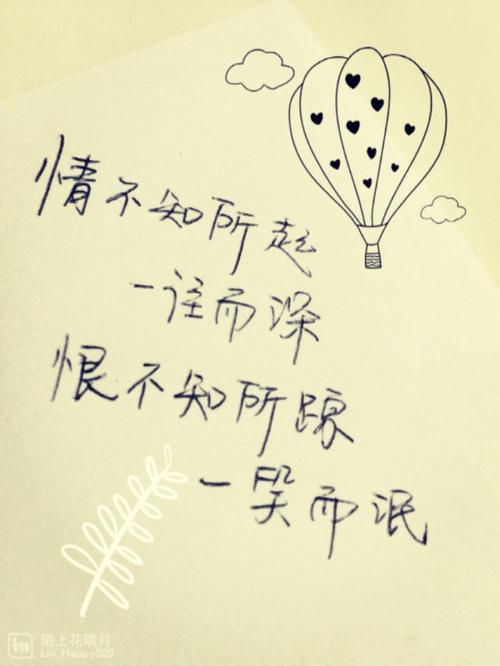 情不知所起
一往而深
恨不知所踪
一哭而泯
in 陌上花璃月
Lin_Happy520